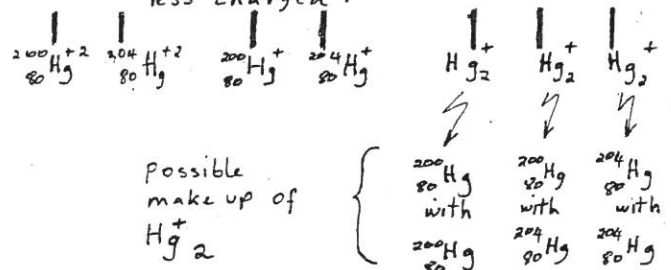 less charged.
²⁰⁰₈₀Hg⁺² ²⁰⁴₈₀Hg⁺² ²⁰⁰₈₀Hg⁺ ²⁰⁴₈₀Hg⁺ Hg₂⁺ Hg₂⁺ Hg₂⁺
possible
make up of
Hg₂⁺
²⁰⁰₈₀Hg ²⁰⁰₈₀Hg ²⁰⁴₈₀Hg
with with with
²⁰⁰₈₀Hg ²⁰⁴₈₀Hg ²⁰⁴₈₀Hg